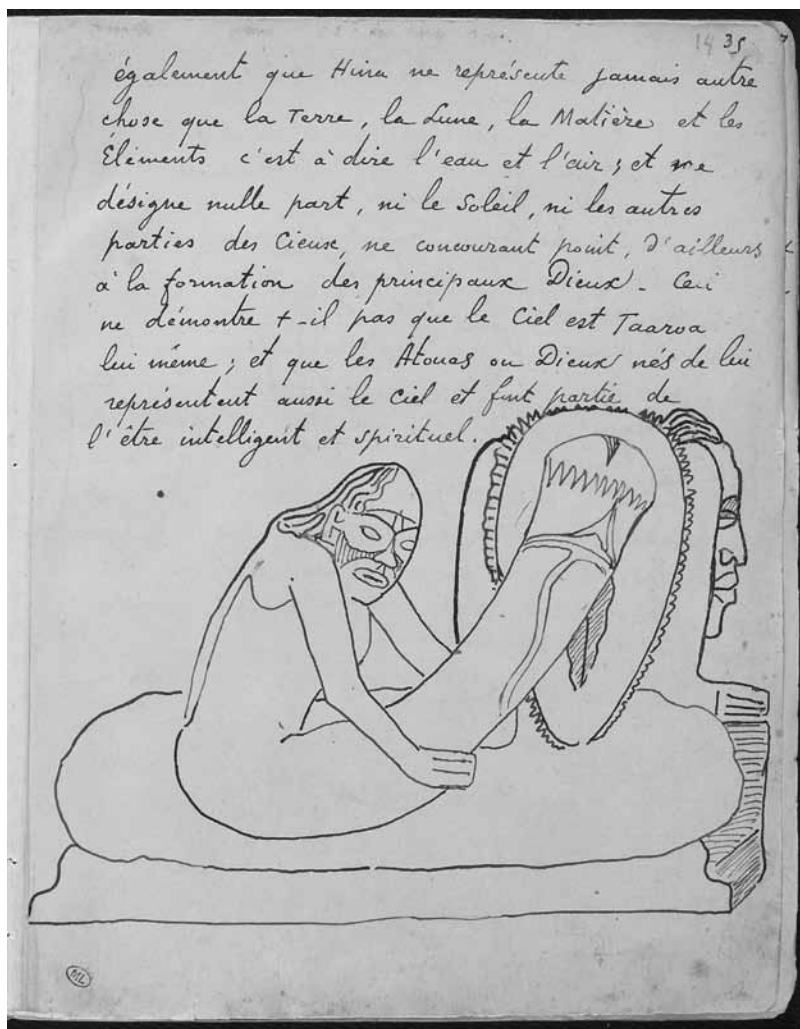 14 35
également que Hina ne représente jamais autre
chose que la Terre, la Lune, la Matière et les
Éléments c'est à dire l'eau et l'air ; et ne
désigne nulle part, ni le Soleil, ni les autres
parties des Cieux, ne concourant point, d'ailleurs
à la formation des principaux Dieux. Ceci
ne démontre t-il pas que le Ciel est Taaroa
lui même ; et que les Atouas ou Dieux nés de lui
représentent aussi le Ciel et font partie de
l'être intelligent et spirituel.
ML